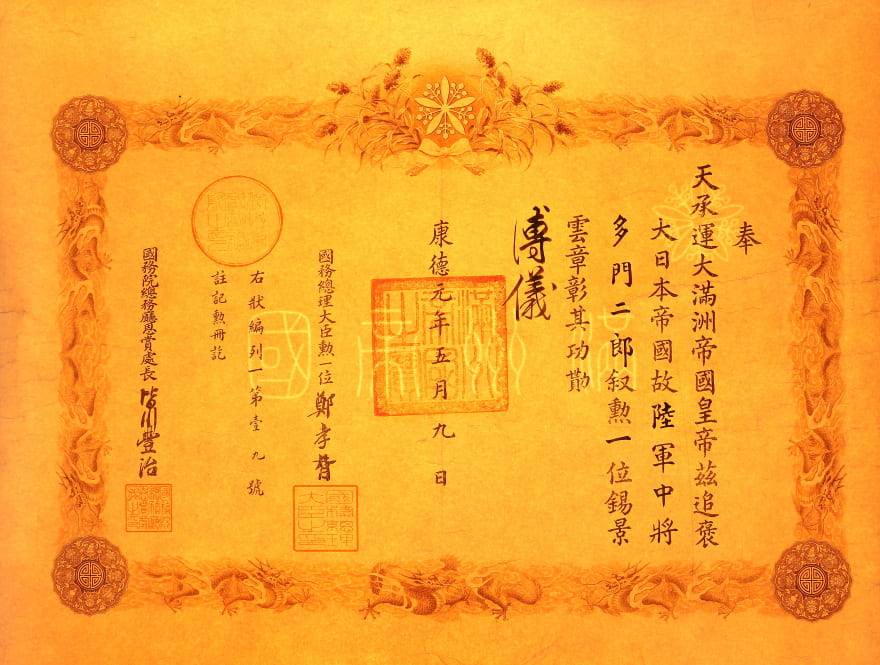 奉
天承運大滿洲帝國皇帝茲追褒
大日本帝國故陸軍中將
多門二郎叙勲一位錫景
雲章彰其功勛
溥儀
康德元年五月九日
國務總理大臣勲一位鄭孝胥
右狀編列一第壹九號
註記勲冊訖
國務院總務廳恩賞處長皆川豐治
滿洲帝國